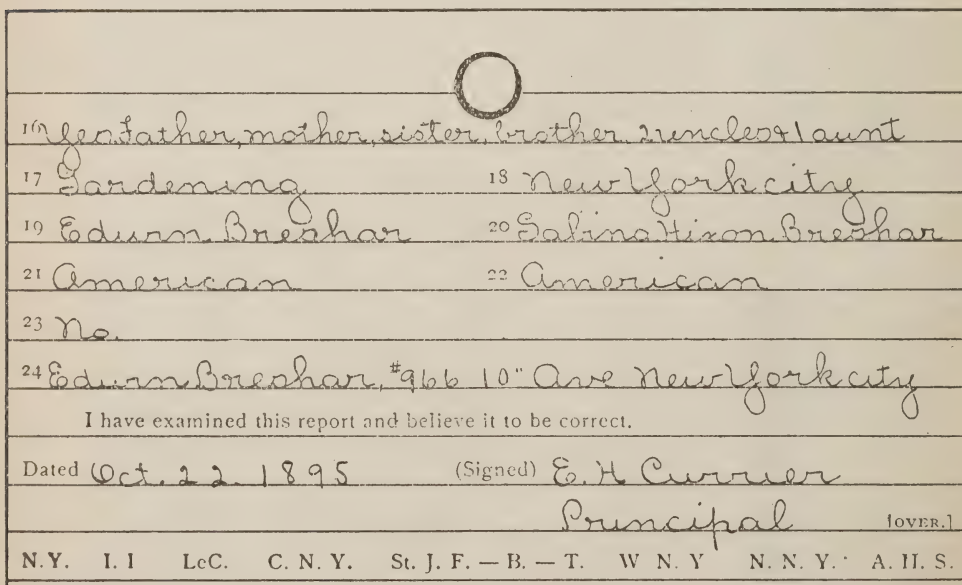 16 Yes. Father, mother, sister, brother, 2 uncles & 1 aunt
17 Gardening 18 New York city
19 Edwin Breshar 20 Salina Hixon Breshar
21 American 22 American
23 No.
24 Edwin Breshar, #966 10" Ave New York city
I have examined this report and believe it to be correct.
Dated Oct. 22. 1895 (Signed) E. H Currier
Principal [OVER.]
N.Y. I. I LeC. C. N. Y. St. J. F. — B. — T. W N. Y N. N. Y. A. H. S.